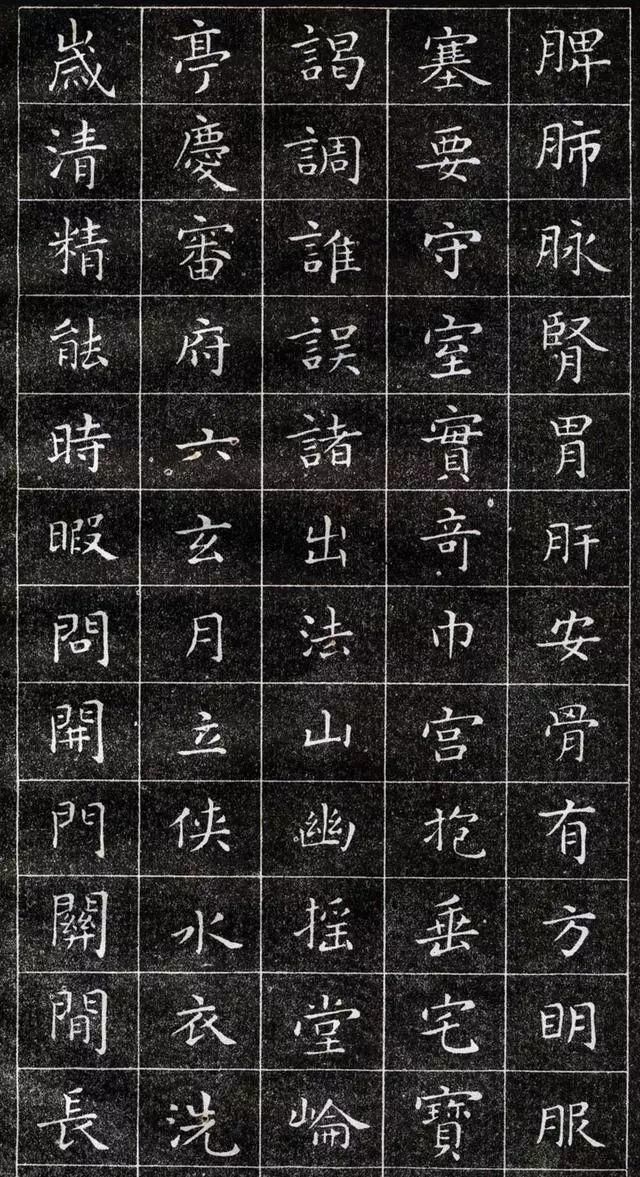 脾肺脉腎胃肝安骨有方明服
塞要守室實奇巾宫抱垂宅寳
謁調誰誤諸出法山幽摇堂崘
亭慶審府六玄月立侠水衣洗
歲清精能時暇問開門關閒長